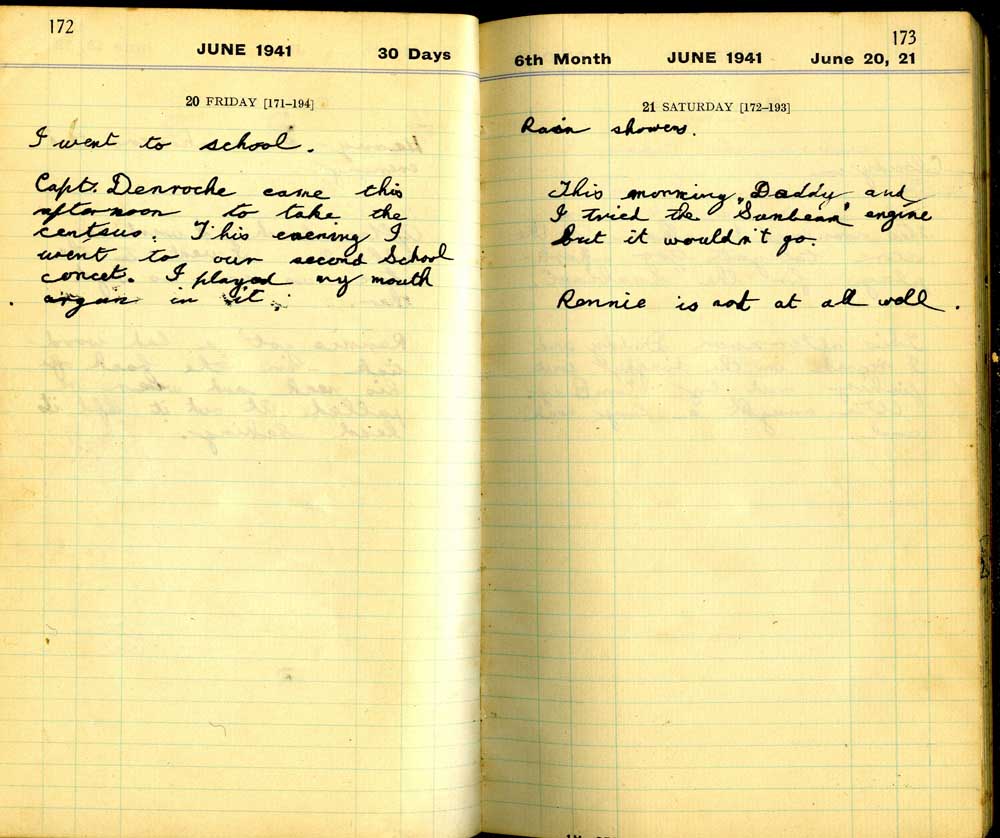 172
JUNE 1941 30 Days
20 FRIDAY [171–194]
I went to school.
Capt. Denroche came this
afternoon to take the
centsus. This evening I
went to our second School
concet. I played my mouth
argan in it.
173
6th Month JUNE 1941 June 20, 21
21 SATURDAY [172–193]
Rain showers.
This morning, Daddy and
I tried the "Sunbeam" engine
but it wouldn't go.
Rennie is not at all well.